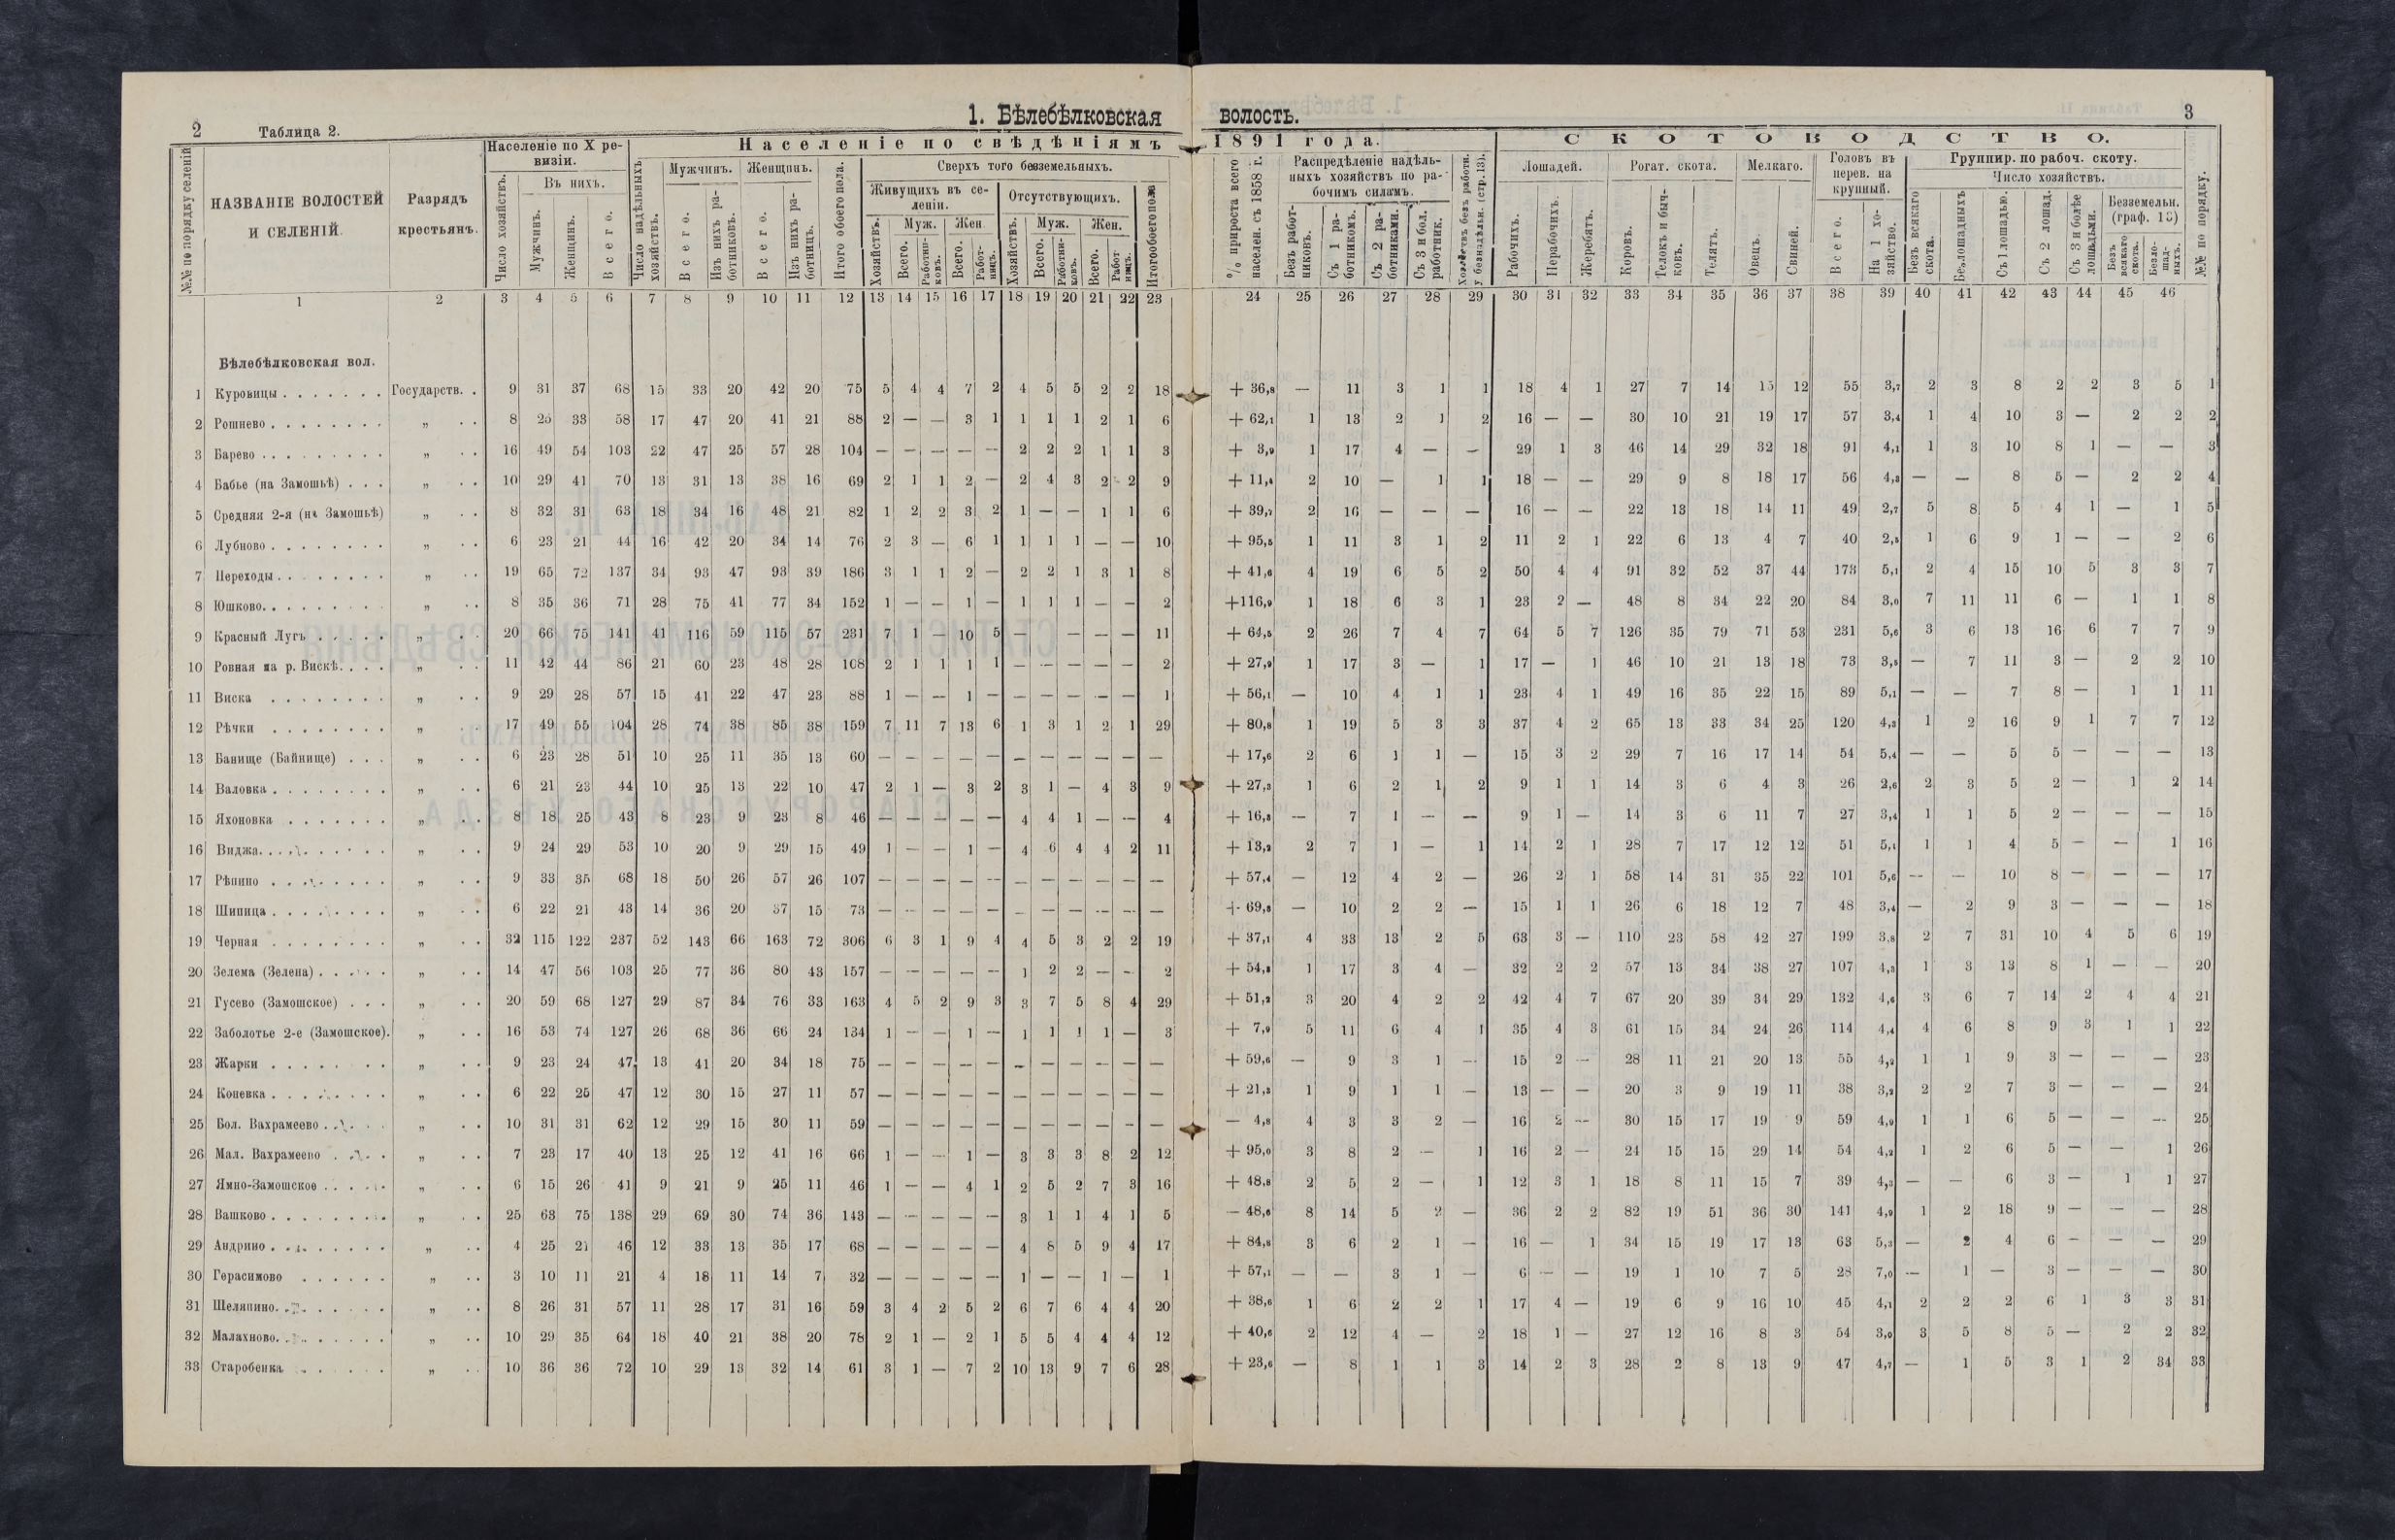 2 Таблица 2. 1. Бѣлебѣлковская волость. 3
№№ по порядку селеній
НАЗВАНІЕ ВОЛОСТЕЙ И СЕЛЕНІЙ.
Разрядъ крестьянъ.
Населеніе по X ревизіи.
Число хозяйствъ.
Въ нихъ.
Мужчинъ. Женщинъ. Всего.
Населеніе по свѣдѣніямъ 1891 года.
Число надѣльныхъ хозяйствъ.
Мужчинъ. Всего. Изъ нихъ работниковъ.
Женщинъ. Всего. Изъ нихъ работницъ.
Итого обоего пола.
Сверхъ того безземельныхъ.
Живущихъ въ селеніи. Хозяйствъ. Муж. Всего. Работниковъ. Жен. Всего. Работницъ.
Отсутствующихъ. Хозяйствъ. Муж. Всего. Работниковъ. Жен. Всего. Работницъ.
Итого обоего пола
% прироста всего населен. съ 1858 г.
Распредѣленіе надѣльныхъ хозяйствъ по рабочимъ силамъ.
Безъ работниковъ. Съ 1 работникомъ. Съ 2 работниками. Съ 3 и бол. работник.
Хозяйствъ безъ работн. у безнадѣльн. (стр. 13).
СКОТОВОДСТВО.
Лошадей. Рабочихъ. Нерабочихъ. Жеребятъ.
Рогат. скота. Коровъ. Телокъ и бычковъ. Телятъ.
Мелкаго. Овецъ. Свиней.
Головъ въ перев. на крупный. Всего. На 1 хозяйство.
Группир. по рабоч. скоту.
Число хозяйствъ.
Безъ всякаго скота. Безлошадныхъ Съ 1 лошадью. Съ 2 лошад. Съ 3 и болѣе лошадьми.
Безземельн. (граф. 13) Безъ всякаго скота. Безлошадныхъ.
№№ по порядку.
1 2 3 4 5 6 7 8 9 10 11 12 13 14 15 16 17 18 19 20 21 22 23 24 25 26 27 28 29 30 31 32 33 34 35 36 37 38 39 40 41 42 43 44 45 46
Бѣлебѣлковская вол.
1 Куровицы Государств. 9 31 37 68 15 33 20 42 20 75 5 4 4 7 2 4 5 5 2 2 18 + 36,8 — 11 3 1 1 18 4 1 27 7 14 15 12 55 3,7 2 3 8 2 2 3 5 1
2 Рошнево „ 8 25 33 58 17 47 20 41 21 88 2 — — 3 1 1 1 1 2 1 6 + 62,1 1 13 2 1 2 16 — — 30 10 21 19 17 57 3,4 1 4 10 3 — 2 2 2
3 Барево „ 16 49 54 103 22 47 25 57 28 104 — — — — — 2 2 2 1 1 3 + 3,9 1 17 4 — — 29 1 3 46 14 29 32 18 91 4,1 1 3 10 8 1 — — 3
4 Бабье (на Замошьѣ) „ 10 29 41 70 13 31 13 38 16 69 2 1 1 2 — 2 4 3 2 2 9 + 11,4 2 10 — 1 1 18 — — 29 9 8 18 17 56 4,3 — — 8 5 — 2 2 4
5 Средняя 2-я (на Замошьѣ) „ 8 32 31 63 18 34 16 48 21 82 1 2 2 3 2 1 — — 1 1 6 + 39,7 2 16 — — — 16 — — 22 13 18 14 11 49 2,7 5 8 5 4 1 — 1 5
6 Лубново „ 6 23 21 44 16 42 20 34 14 76 2 3 — 6 1 1 1 1 — — 10 + 95,5 1 11 3 1 2 11 2 1 22 6 13 4 7 40 2,5 1 6 9 1 — — 2 6
7 Переходы „ 19 65 72 137 34 93 47 93 39 186 3 1 1 2 — 2 2 1 3 1 8 + 41,6 4 19 6 5 2 50 4 4 91 32 52 37 44 173 5,1 2 4 15 10 5 3 3 7
8 Юшково „ 8 35 36 71 28 75 41 77 34 152 1 — — 1 — 1 1 1 — — 2 +116,9 1 18 6 3 1 23 2 — 48 8 34 22 20 84 3,0 7 11 11 6 — 1 1 8
9 Красный Лугъ „ 20 66 75 141 41 116 59 115 57 231 7 1 — 10 5 — — — — 11 + 64,5 2 26 7 4 7 64 5 7 126 35 79 71 53 231 5,6 3 6 13 16 6 7 7 9
10 Ровная на р. Вискѣ „ 11 42 44 86 21 60 23 48 28 108 2 1 1 1 1 — — — — — 2 + 27,9 1 17 3 — 1 17 — 1 46 10 21 13 18 73 3,5 — 7 11 3 — 2 2 10
11 Виска „ 9 29 28 57 15 41 22 47 23 88 1 — — 1 — — — — — — 1 + 56,1 — 10 4 1 1 23 4 1 49 16 35 22 15 89 5,1 — — 7 8 — 1 1 11
12 Рѣчки „ 17 49 55 104 28 74 38 85 38 159 7 11 7 13 6 1 3 1 2 1 29 + 80,8 1 19 5 3 3 37 4 2 65 13 33 34 25 120 4,3 1 2 16 9 1 7 7 12
13 Банище (Байнище) „ 6 23 28 51 10 25 11 35 13 60 — — — — — — — — — — — + 17,6 2 6 1 1 — 15 3 2 29 7 16 17 14 54 5,4 — — 5 5 — — — 13
14 Валовка „ 6 21 23 44 10 25 13 22 10 47 2 1 — 3 2 3 1 — 4 3 9 + 27,3 1 6 2 1 2 9 1 1 14 3 6 4 3 26 2,6 2 3 5 2 — 1 2 14
15 Яхоновка „ 8 18 25 43 8 23 9 23 8 46 — — — — — 4 4 1 — — 4 + 16,3 — 7 1 — — 9 1 — 14 3 6 11 7 27 3,4 1 1 5 2 — — — 15
16 Виджа „ 9 24 29 53 10 20 9 29 15 49 1 — — 1 — 4 6 4 4 2 11 + 13,2 2 7 1 — 1 14 2 1 28 7 17 12 12 51 5,1 1 1 4 5 — — 1 16
17 Рѣпино „ 9 33 35 68 18 50 26 57 26 107 — — — — — — — — — — — + 57,4 — 12 4 2 — 26 2 1 58 14 31 35 22 101 5,6 — — 10 8 — — — 17
18 Шипица „ 6 22 21 43 14 36 20 37 15 73 — — — — — — — — — — — + 69,8 — 10 2 2 — 15 1 1 26 6 18 12 7 48 3,4 — 2 9 3 — — — 18
19 Черная „ 32 115 122 237 52 143 66 163 72 306 6 3 1 9 4 4 5 3 2 2 19 + 37,1 4 33 13 2 5 63 3 — 110 23 58 42 27 199 3,8 2 7 31 10 4 5 6 19
20 Зелема (Зелена) „ 14 47 56 103 25 77 36 80 43 157 — — — — — 1 2 2 — — 2 + 54,3 1 17 3 4 — 32 2 2 57 13 34 38 27 107 4,3 1 3 13 8 1 — — 20
21 Гусево (Замошское) „ 20 59 68 127 29 87 34 76 33 163 4 5 2 9 3 3 7 5 8 4 29 + 51,2 3 20 4 2 2 42 4 7 67 20 39 34 29 132 4,6 3 6 7 14 2 4 4 21
22 Заболотье 2-е (Замошское). „ 16 53 74 127 26 68 36 66 24 134 1 — — 1 — 1 1 1 1 — 3 + 7,9 5 11 6 4 1 35 4 3 61 15 34 24 26 114 4,4 4 6 8 9 3 1 1 22
23 Жарки „ 9 23 24 47 13 41 20 34 18 75 — — — — — — — — — — — + 59,6 — 9 3 1 — 15 2 — 28 11 21 20 13 55 4,2 1 1 9 3 — — — 23
24 Коневка „ 6 22 25 47 12 30 15 27 11 57 — — — — — — — — — — — + 21,3 1 9 1 1 — 13 — — 20 3 9 19 11 38 3,2 2 2 7 3 — — — 24
25 Бол. Вахрамеево „ 10 31 31 62 12 29 15 30 11 59 — — — — — — — — — — — — 4,8 4 3 3 2 — 16 2 — 30 15 17 19 9 59 4,9 1 1 6 5 — — — 25
26 Мал. Вахрамеево „ 7 23 17 40 13 25 12 41 16 66 1 — — 1 — 3 3 3 8 2 12 + 95,0 3 8 2 — 1 16 2 — 24 15 15 29 14 54 4,2 1 2 6 5 — — 1 26
27 Ямно-Замошское „ 6 15 26 41 9 21 9 25 11 46 1 — — 4 1 2 5 2 7 3 16 + 48,8 2 5 2 — 1 12 3 1 18 8 11 15 7 39 4,3 — — 6 3 — 1 1 27
28 Вашково „ 25 63 75 138 29 69 30 74 36 143 — — — — — 3 1 1 4 1 5 — 48,6 8 14 5 2 — 36 2 2 82 19 51 36 30 141 4,9 1 2 18 9 — — — 28
29 Андрино „ 4 25 21 46 12 33 13 35 17 68 — — — — — 4 8 5 9 4 17 + 84,8 3 6 2 1 — 16 — 1 34 15 19 17 13 63 5,3 — 2 4 6 — — — 29
30 Герасимово „ 3 10 11 21 4 18 11 14 7 32 — — — — — 1 — — 1 — 1 + 57,1 — — 3 1 — 6 — — 19 1 10 7 5 28 7,0 — 1 — 3 — — — 30
31 Шеляпино „ 8 26 31 57 11 28 17 31 16 59 3 4 2 5 2 6 7 6 4 4 20 + 38,6 1 6 2 2 1 17 4 — 19 6 9 16 10 45 4,1 2 2 2 6 1 3 3 31
32 Малахново „ 10 29 35 64 18 40 21 38 20 78 2 1 — 2 1 5 5 4 4 4 12 + 40,6 2 12 4 — 2 18 1 — 27 12 16 8 3 54 3,0 3 5 8 5 — 2 2 32
33 Старобенка „ 10 36 36 72 10 29 13 32 14 61 3 1 — 7 2 10 13 9 7 6 28 + 23,6 — 8 1 1 3 14 2 3 28 2 8 13 9 47 4,7 — 1 5 3 1 2 34 33